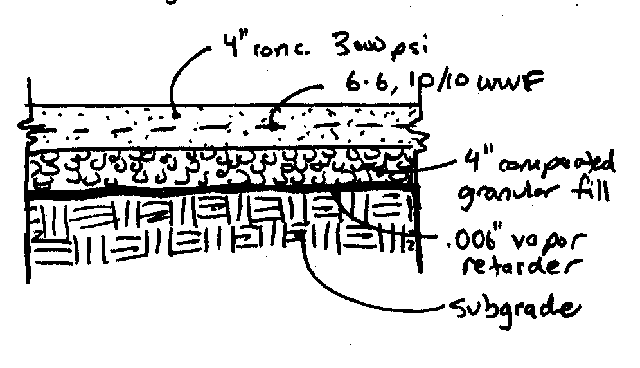 4" conc. 3000 psi
6·6, 10/10 WWF
4" compacted
granular fill
.006" vapor
retarder
subgrade